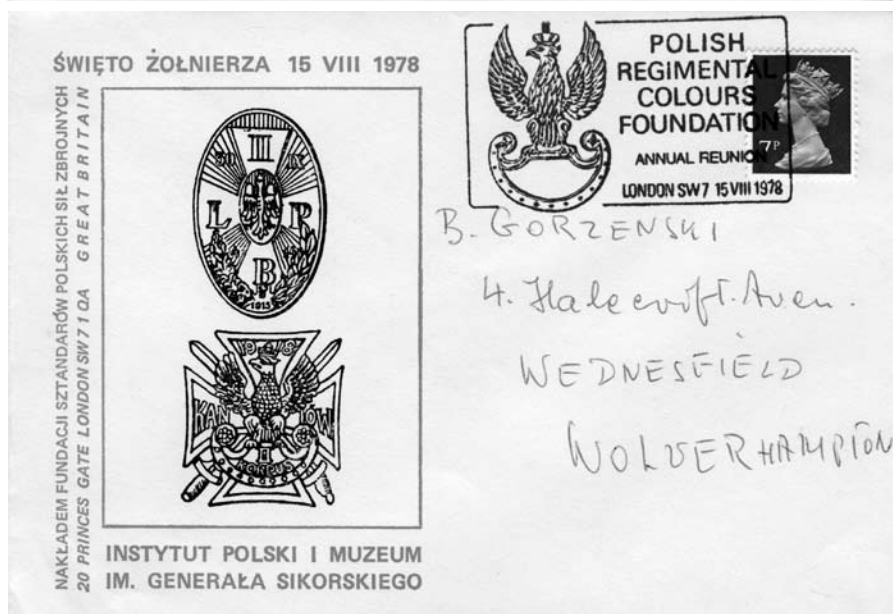 ŚWIĘTO ŻOŁNIERZA 15 VIII 1978
NAKŁADEM FUNDACJI SZTANDARÓW POLSKICH SIŁ ZBROJNYCH
20 PRINCES GATE LONDON SW7 1QA GREAT BRITAIN
III
L P
B
1915
KANIÓW
II
KORPUS
INSTYTUT POLSKI I MUZEUM
IM. GENERAŁA SIKORSKIEGO
POLISH
REGIMENTAL
COLOURS
FOUNDATION
ANNUAL REUNION
LONDON SW7 15 VIII 1978
7P
B. GORZENSKI
4. Halecroft. Aven.
WEDNESFIELD
WOLVERHAMPTON